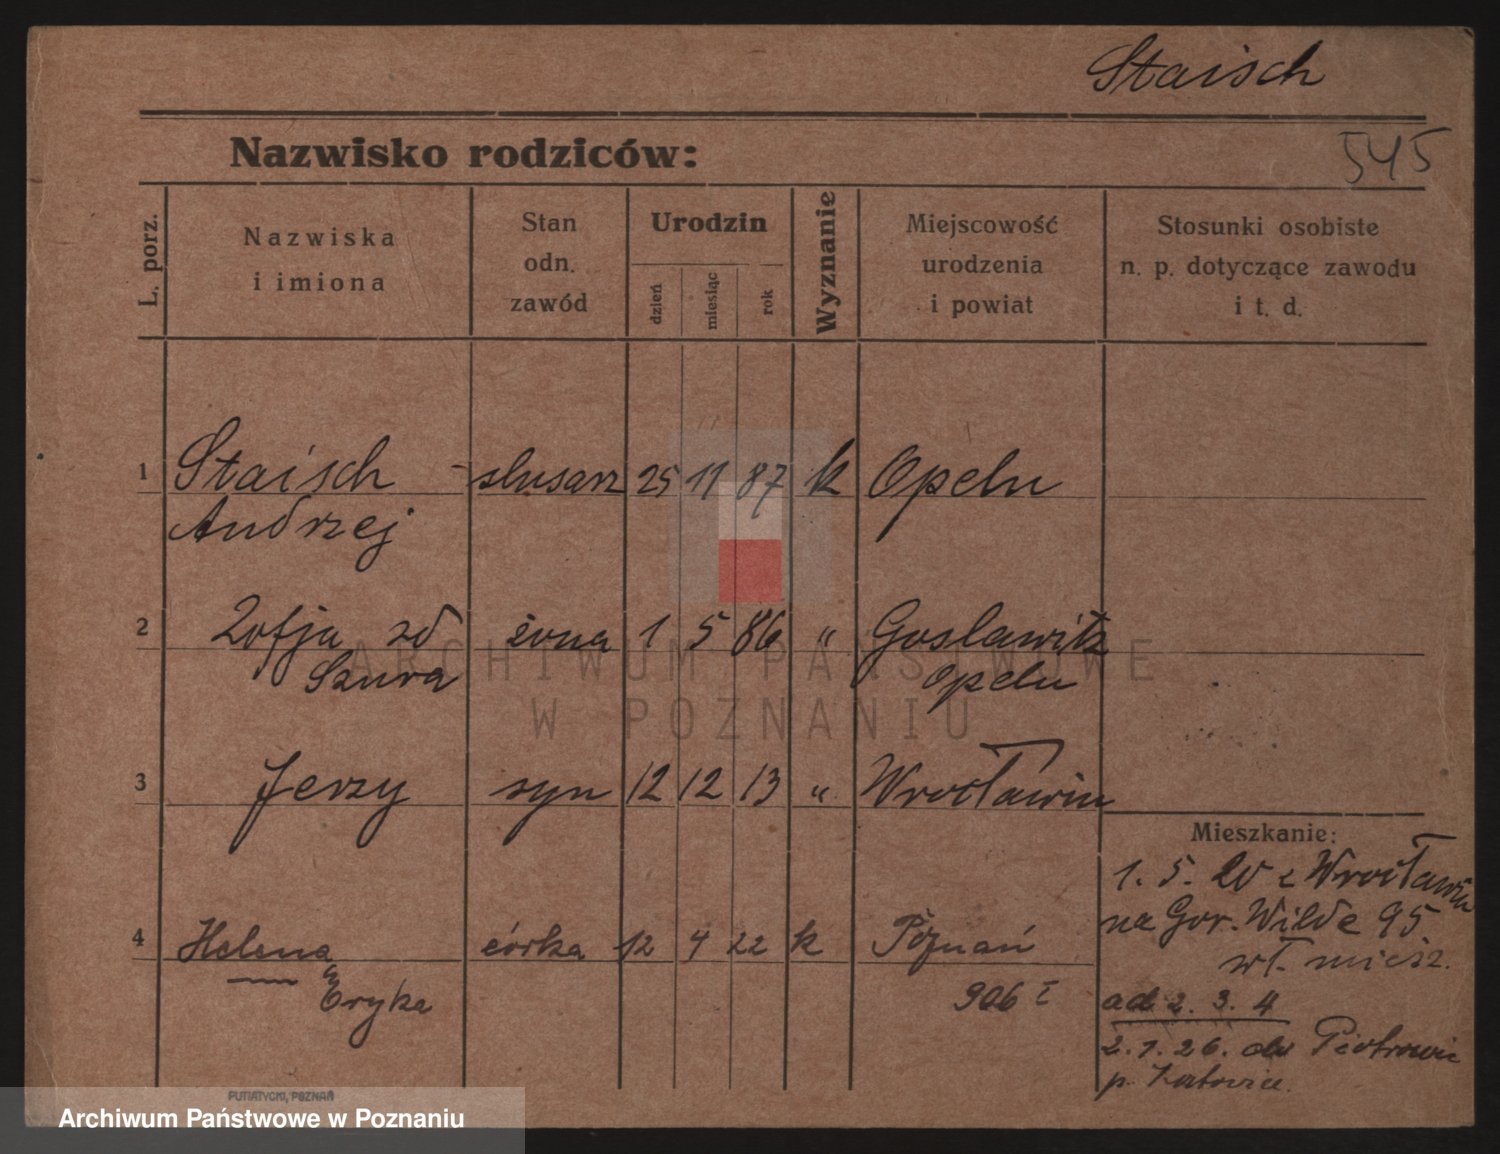 Staisch
545
Nazwisko rodziców:
L. porz.
Nazwiska
i imiona
Stan
odn.
zawód
Urodzin
dzień
miesiąc
rok
Wyznanie
Miejscowość
urodzenia
i powiat
Stosunki osobiste
n. p. dotyczące zawodu
i t. d.
1 Staisch - slusarz 25 11 87 k Opeln
Andrzej
2 Zofja zd żona 1 5 86 " Goslawitz
Szura Opeln
ARCHIWUM PAŃSTWOWE
W POZNANIU
3 Jerzy syn 12 12 13 " Wrocławiu
Mieszkanie:
1. 5. 20 z Wrocławia
na Gor. Wilde 95
wł. miesz.
4 Helena córka 12 4 22 k Poznań
Eryka 906 I
ad 2. 3. 4
2. 1. 26. do Piotrowic
p. Katowice.
PUTIATYCKI, POZNAŃ
Archiwum Państwowe w Poznaniu